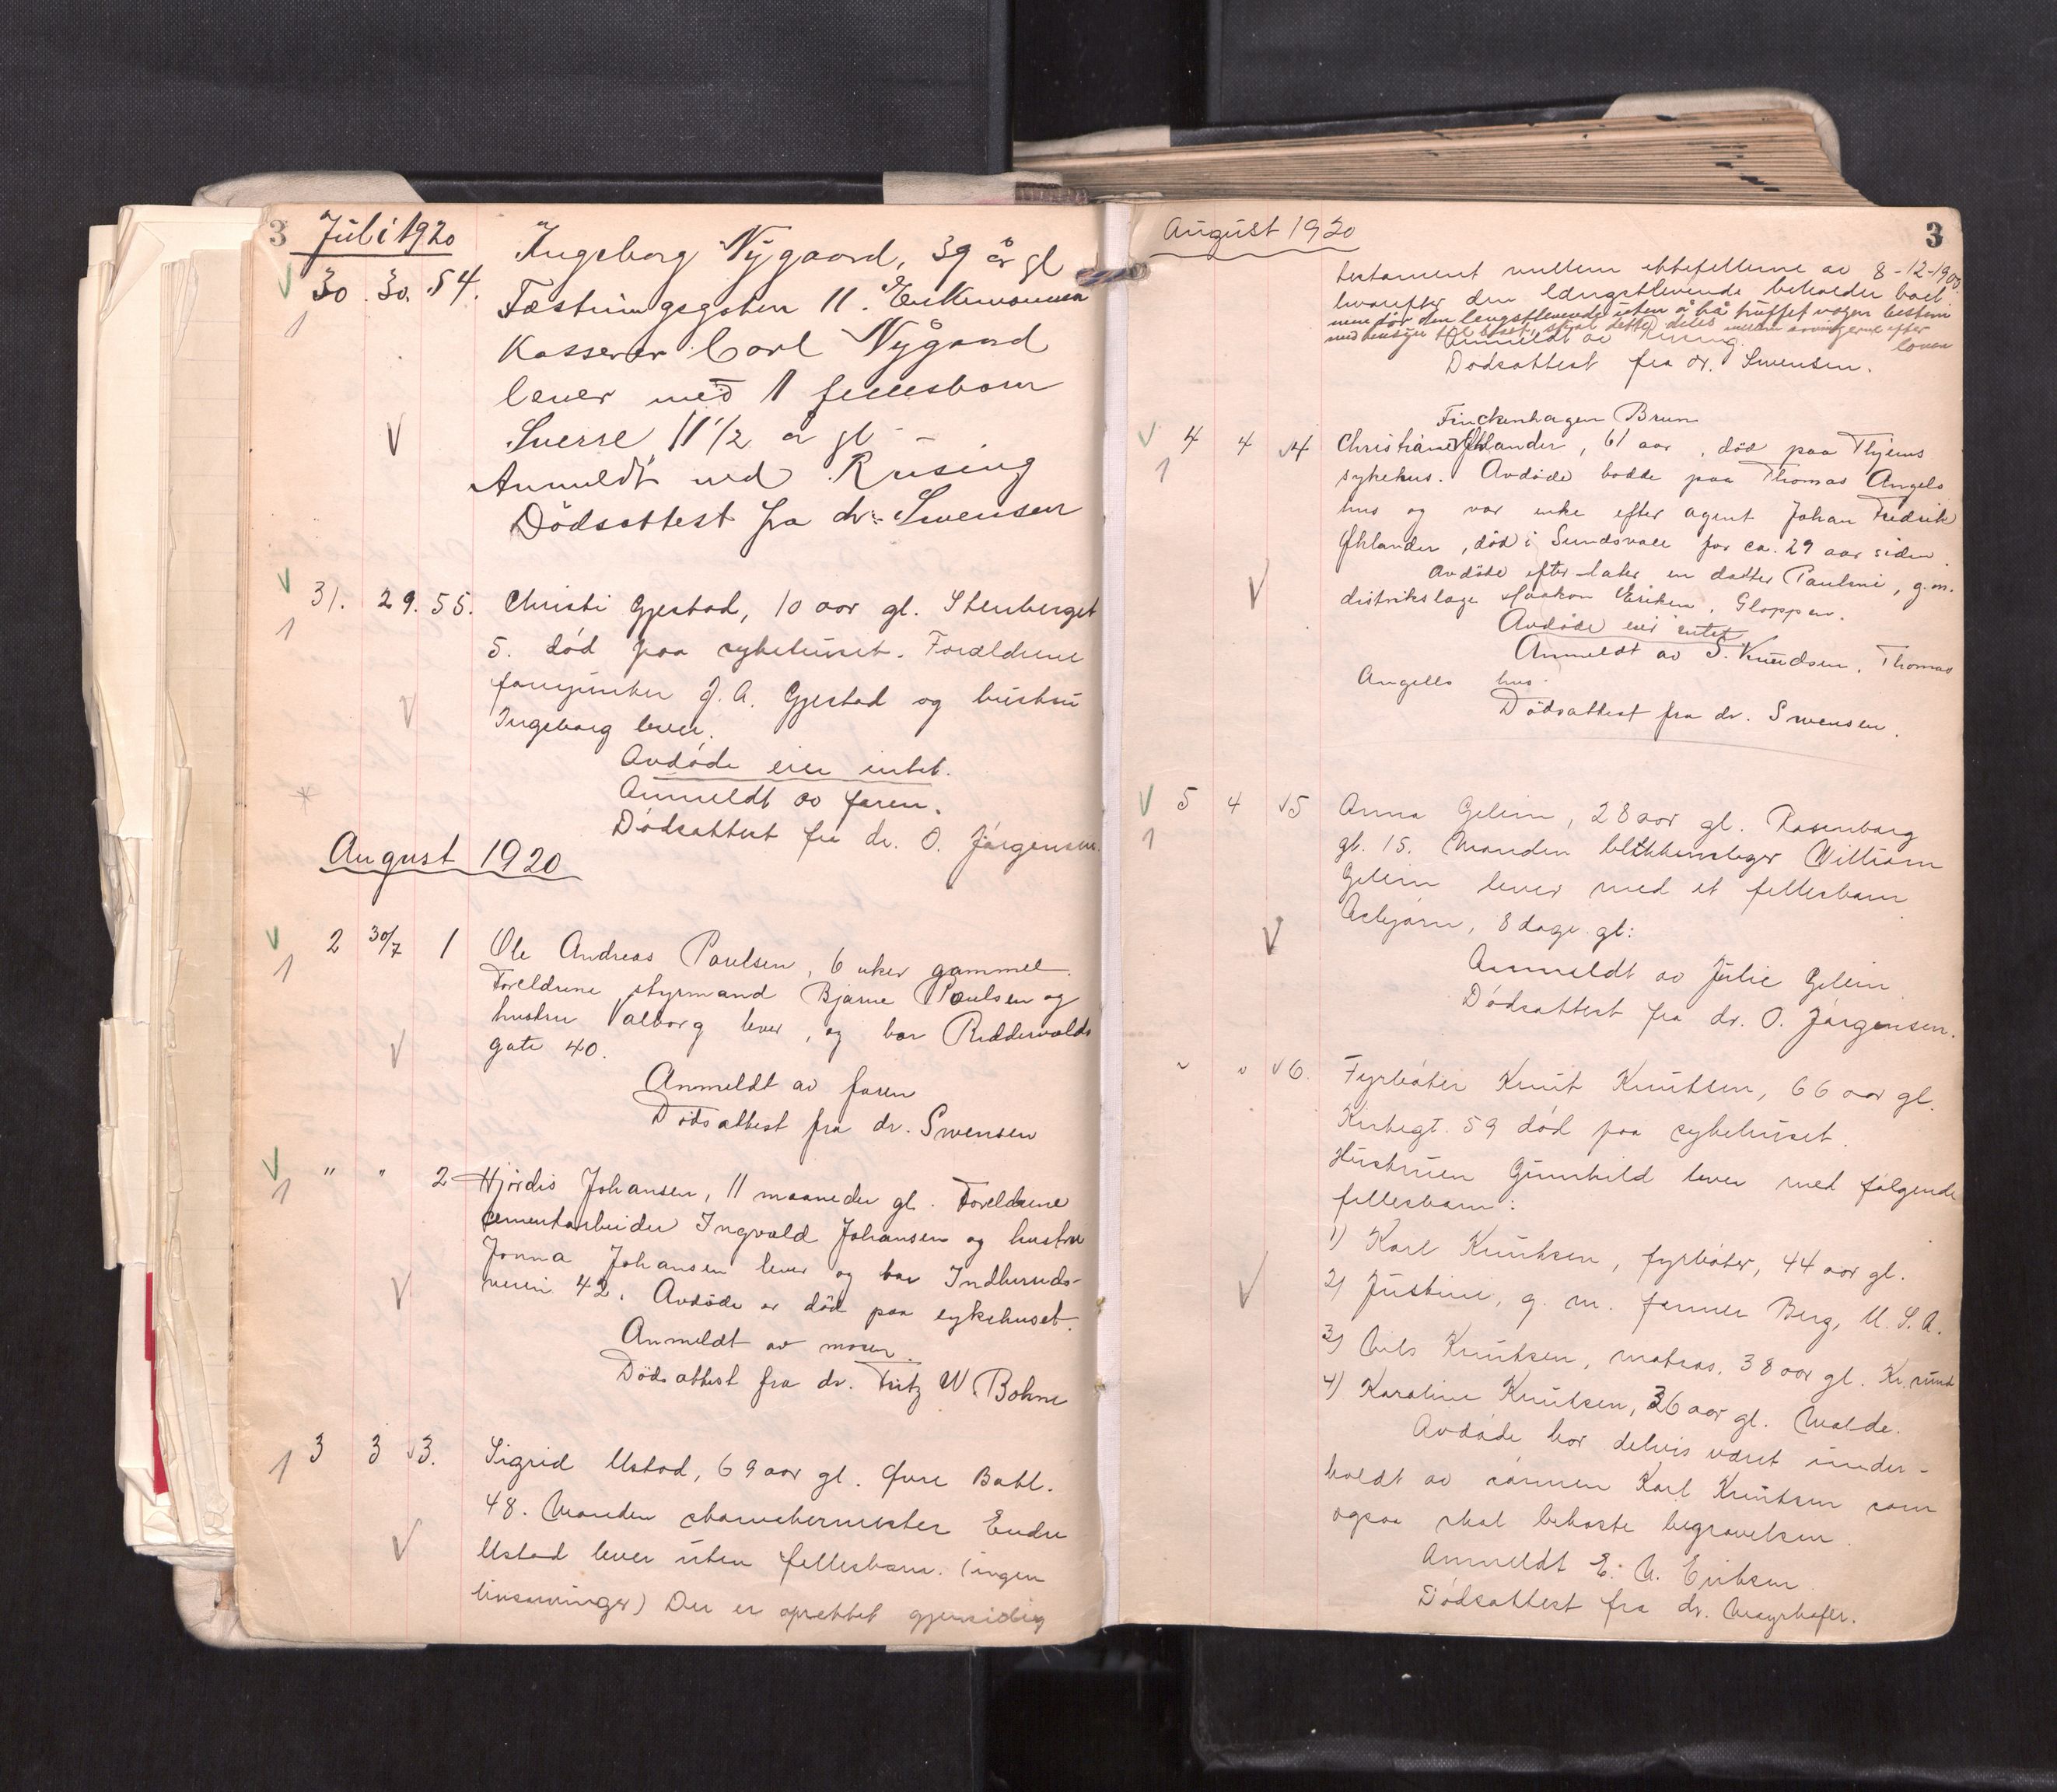 3 Juli 1920
30. 30. 54. Ingeborg Nygaard, 39 år gl
Fæstningsgaten 11. Enkemannen
Kasserer Carl Nygaard
lever med 1 fellesbarn
Sverre, 11 1/2 år gl -
Anmeldt ved Rusing
Dödsattest fra dr. Swensen
31. 29. 55. Christi Gjestad, 10 aar gl. Stenberget
5. död paa sykehuset. Forældrene
fanejunker J. A. Gjestad og hustru
Ingeborg lever.
Avdöde eier intet.
Anmeldt av faren.
Dödsattest fra dr. O. Jörgensen.
August 1920
2 30/7 1 Ole Andreas Paulsen, 6 uker gammel.
Foreldrene styrmand Bjarne Paulsen og
hustru Valborg lever, og bor Riddervolds
gate 40.
Anmeldt av faren
Dödsattest fra dr. Swensen
" " 2 Hjördis Johansen, 11 maaneder gl. Foreldrene
cementarbeider Ingvald Johansen og hustru
Jonna Johansen lever og bor Indherreds-
veien 42. Avdöde er död paa sykehuset.
Anmeldt av moren.
Dödsattest fra dr. Fritz W. Bohne
3 3 3. Sigrid Ustad, 69 aar gl. Övre Bakl.
48. Manden Endre
Ustad lever uten fellesbarn. (ingen
livsarvinger) Der er oprettet gjensidig
August 1920 3
testament mellem ektefellerne av 8-12-1900.
hvorefter den længstlevende beholder boet.
men dör den lengstlevende uten å ha truffet nogen bestem
med hensyn til boet, skal dette deles mellem arvingerne efter
loven
Anmeldt av Rusing.
Dödsattest fra dr. Swensen.
Finckenhagen Brun
4 4 4 Christiane Öhlander, 61 aar, död paa Thjems
sykehus. Avdöde bodde paa Thomas Angels
hus og var enke efter agent Johan Fredrik
Öhlander, död i Sundsvall for ca. 29 aar siden.
Avdöde efterlater en datter Pauline, g.m.
distriktslæge Haakon Eriksen, Gloppen.
Avdöde eier intet
Anmeldt av S. Knudsen, Thomas
Angells hus.
Dödsattest fra dr. Swensen.
5 4 5 Anna Gelein, 28 aar gl. Rosenborg
gt. 15. Manden blikkenslager William
Gelein lever med et fellesbarn
Asbjörn, 8 dage gl:
Anmeldt av Julie Gelein
Dödsattest fra dr. O. Jörgensen.
" " 6. Fyrböter Knut Knutsen, 66 aar gl.
Kirkegt. 59 död paa sykehuset.
Hustruen Gunhild lever med fölgende
fellesbarn:
1) Karl Knutsen, fyrböter, 44 aar gl.
2) Justine, g. m. farmer Berg, U. S. A.
3) Nils Knutsen, matros, 38 aar gl. Kr.sund
4) Karoline Knutsen, 36 aar gl. Molde.
Avdöde har delvis været under-
holdt av sönnen Karl Knutsen som
ogsaa skal bekoste begravelsen.
Anmeldt E. A. Eriksen
Dödsattest fra dr. Mayrhofer.